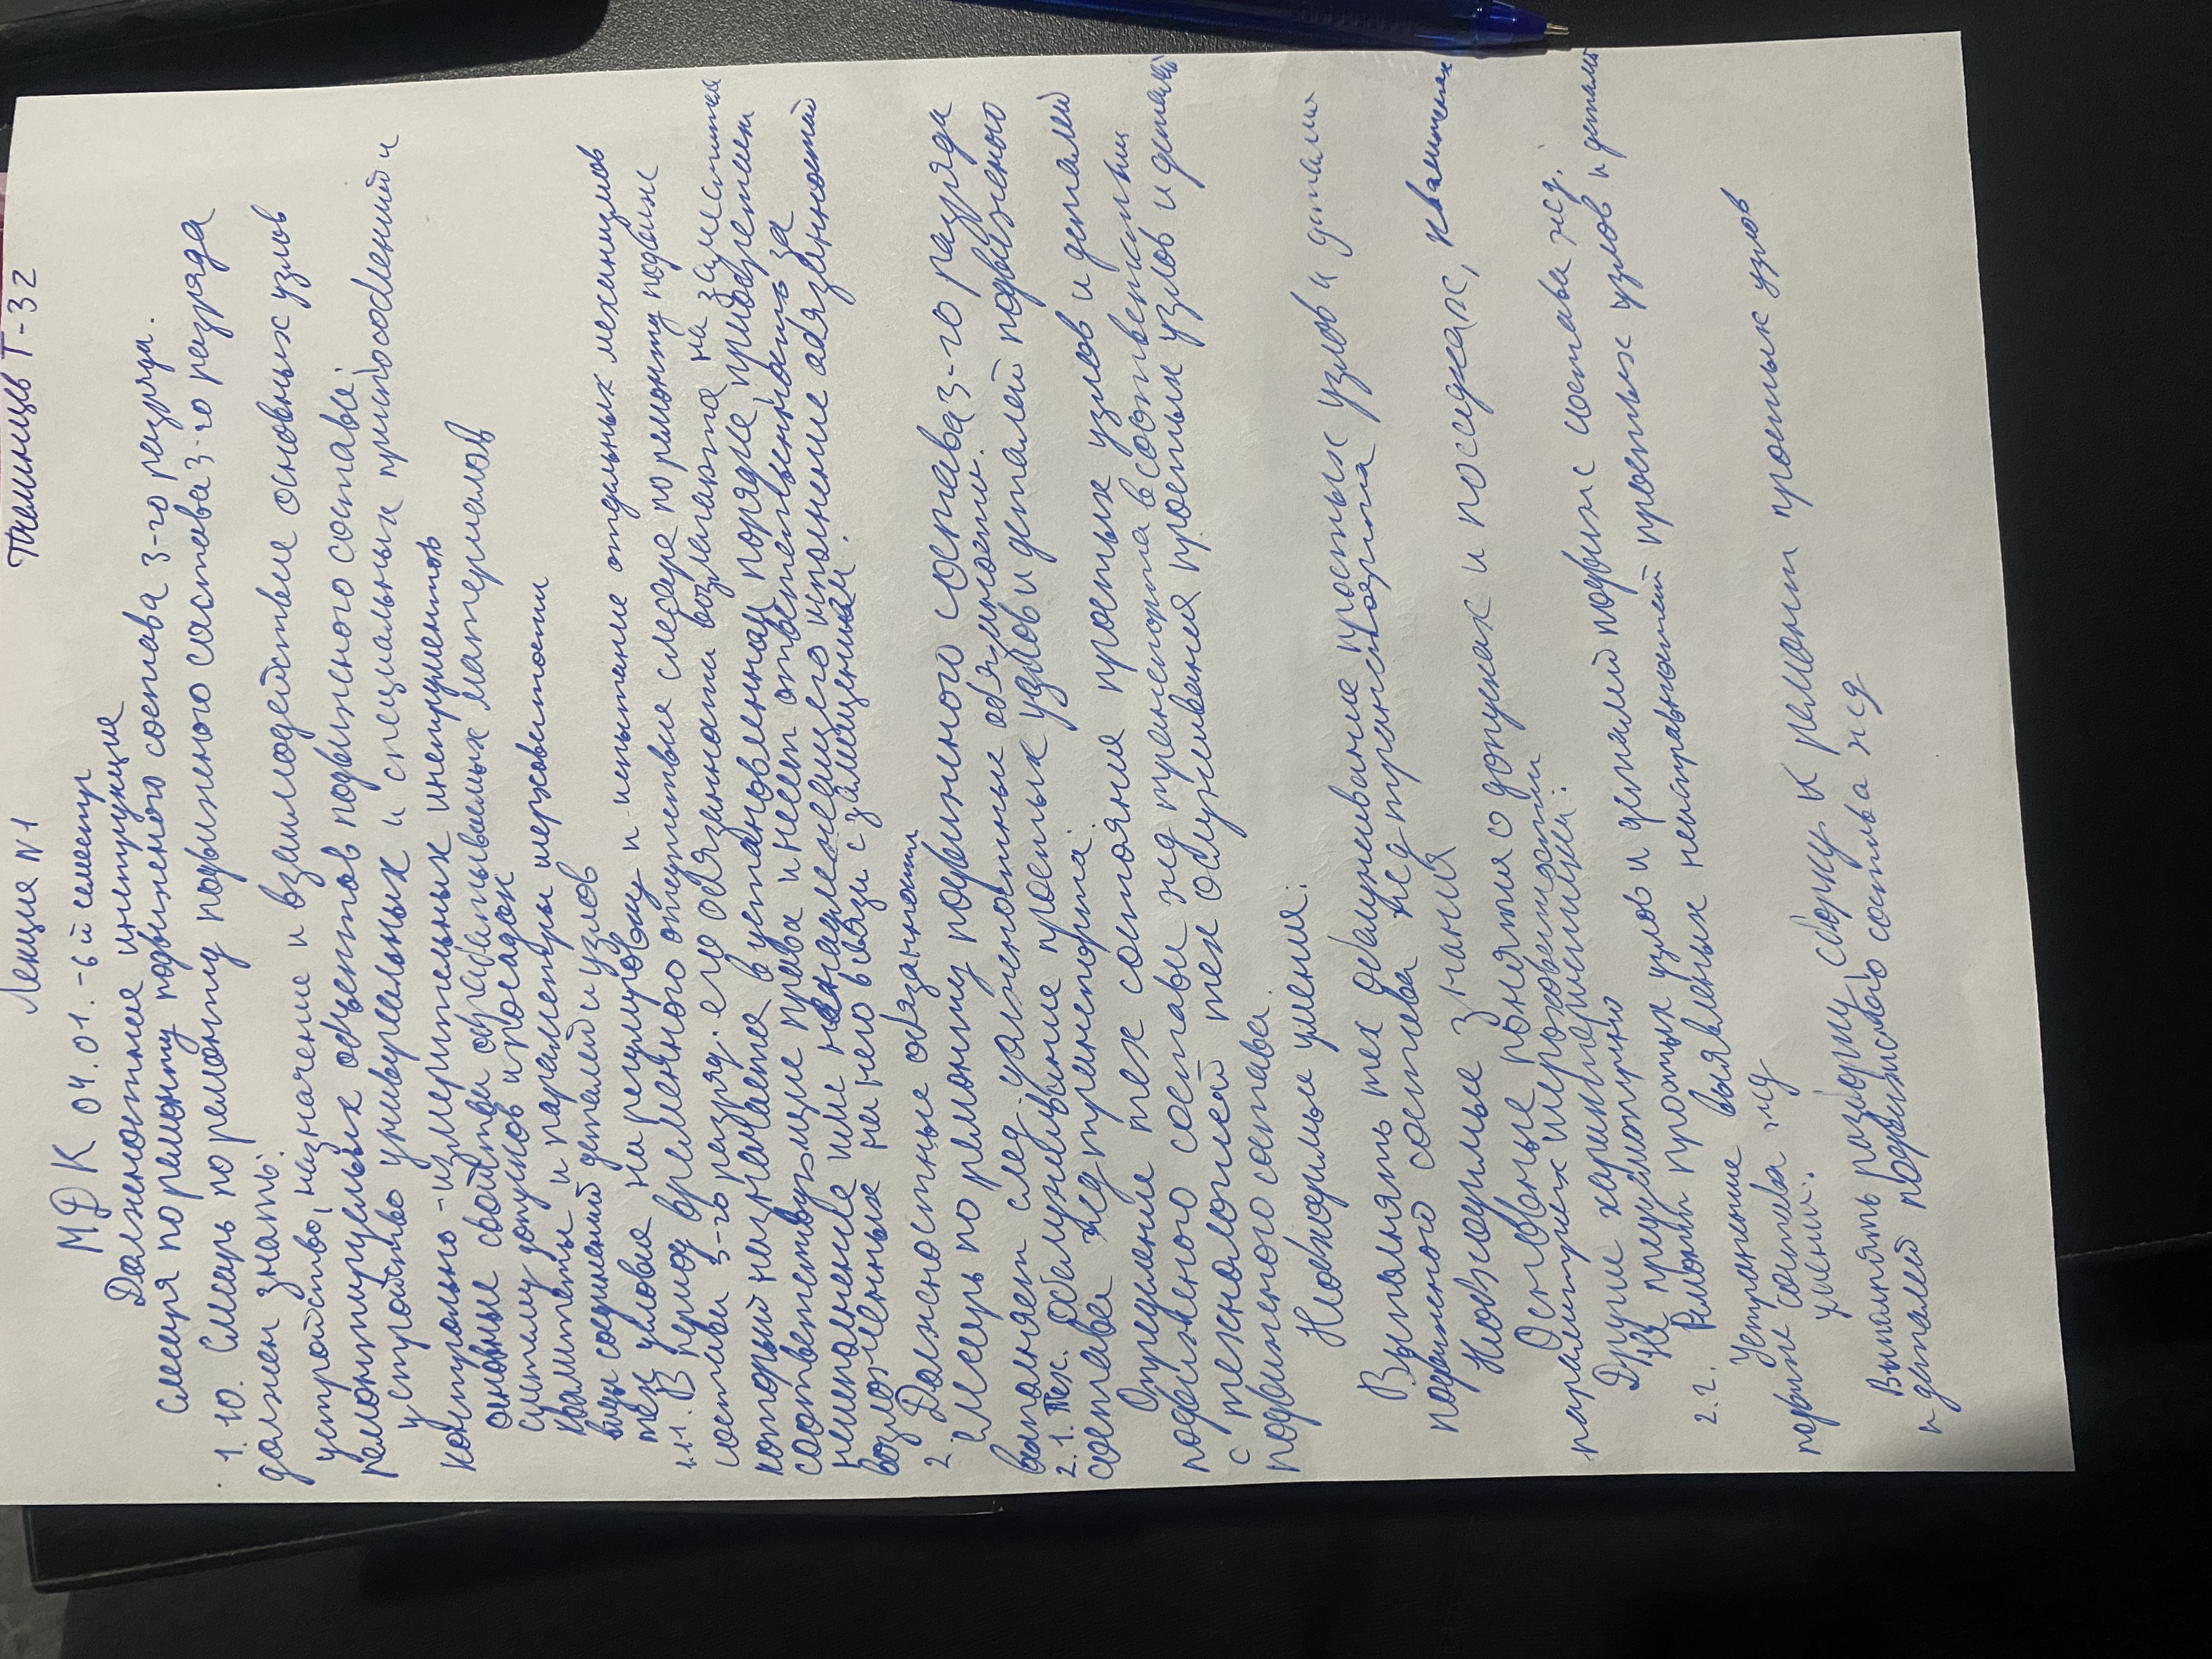 Лекция №1
Т-32
МДК 04.01. - 6й семестр
Должностная инструкция
слесаря по ремонту подвижного состава 3-го разряда.
1.10. Слесарь по ремонту подвижного состава 3-го разряда
должен знать:
устройство, назначение и взаимодействие основных узлов
ремонтируемых объектов подвижного состава;
устройство универсальных и специальных приспособлений и
контрольно-измерительных инструментов
основные свойства обрабатываемых материалов
систему допусков и посадок
квалитеты и параметры шероховатости
виды соединений деталей и узлов
тех условия на регулировку и испытание отдельных механизмов
1.11. В период временного отсутствия слесаря по ремонту подвижн
состава 3-го разряд. его обязанности возлагаются на заместителя
который назначается в установленном порядке, приобретает
соответствующие права и несет ответственность за
неисполнение или ненадлежащего исполнение обязанностей
возложенных на него в связи с замещением.
2. Должностные обязанности
Слесарь по ремонту подвижного состава 3-го разряда
выполняет след. должностные обязанности.
2.1. Тех. Обслуживание простых узлов и деталей подвижного
состава жд транспорта.
Определение тех состояния простых узлов и деталей
подвижного состава жд транспорта в соответствии
с технологией тех обслуживания простых узлов и деталей
подвижного состава.
Необходимые умения:
Выполнять тех обслуживание простых узлов и детали
подвижного состава жд транспорта
Необходимые знания
Основные понятия о допусках и посадках, квалитетах
параметрах шероховатости
Другие характеристики:
Не предусмотрено
2.2. Ремонт простых узлов и деталей подвижн состава жд.
Устранение выявленных неисправностей простых узлов и деталей
состава жд
умения:
Выполнять разборку, сборку к ремонту простых узлов
и деталей подвижного состава жд